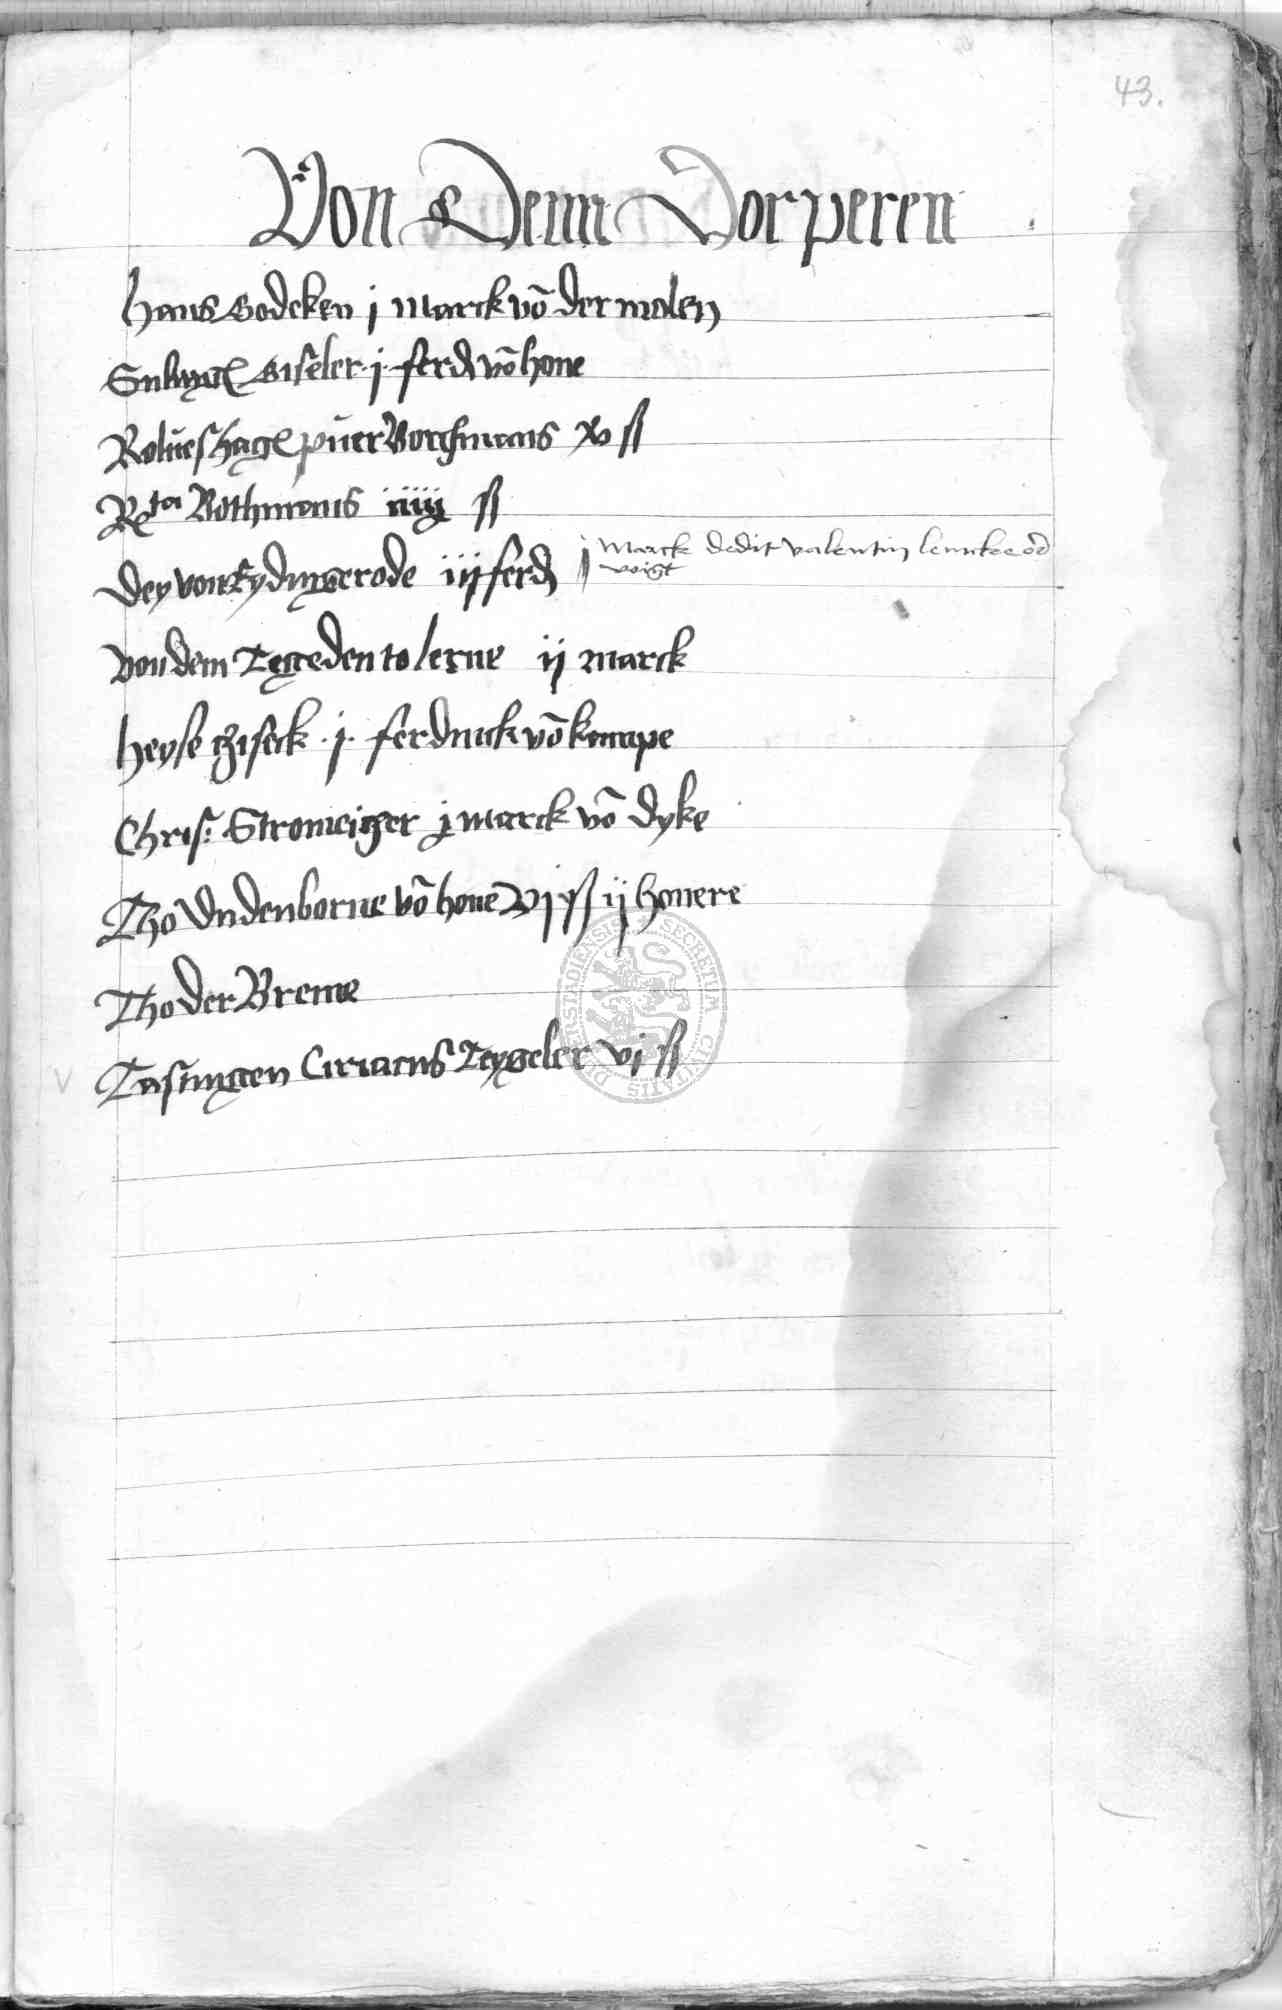 43.
Von Denn Dorperen
Hans Godeken j marck vō der molen
Giseler j ferd vō hone
puer Borchmans xv ß
Rcta Rothmans iiiij ß
Dey von Tydingerode iij ferd j marck dedit valentin lencke od
voigt
Von dem Tegeden to lerne ij marck
Heyse ziseck . j . ferdnick vō kmape
Chris: Stromeiger j marck vō dyke
Tho Undenborne vō hone vj ß ij honere
Tho der Breme
Tastungen Ciriacus Teygeler vj ß
DUDERSTADIENSIS SECRETUM CIVITATIS